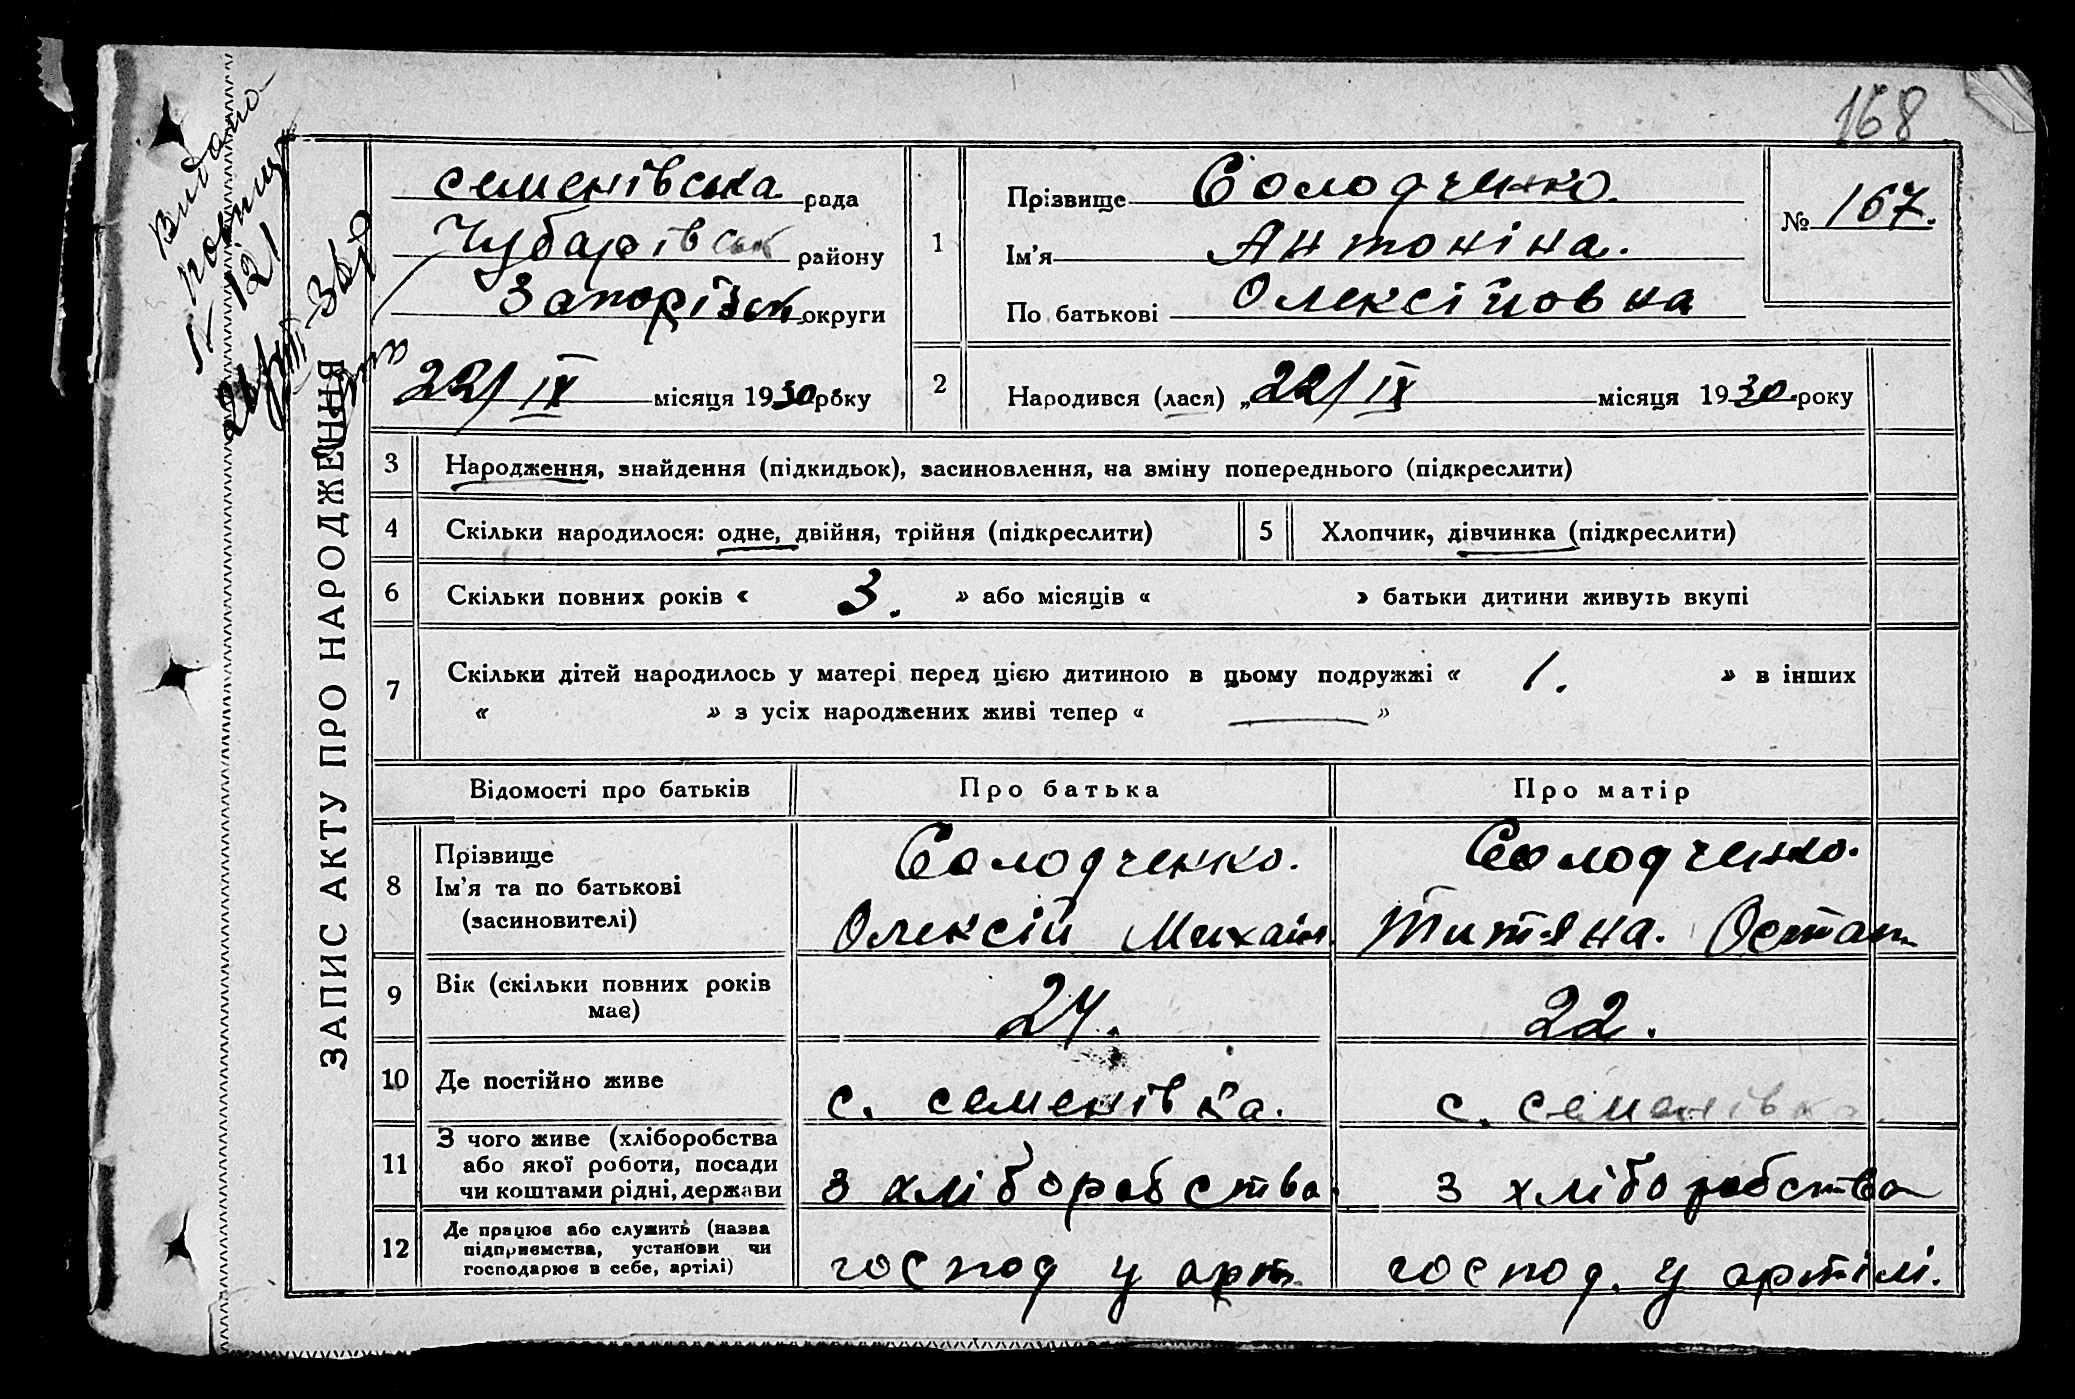 168
Видано
ЗАПИС АКТУ ПРО НАРОДЖЕННЯ
семенівська рада
Чубарівськ району
Запорізьк. округи
22/IX місяця 1930 року
1
Прізвище Солодченко.
Ім'я Антоніна.
По батькові Олексійовна
№ 167.
2
Народився (лася) „22/IX місяця 1930 року
3 Народження, знайдення (підкидьок), засиновлення, на зміну попереднього (підкреслити)
4 Скільки народилося: одне, двійня, трійня (підкреслити) 5 Хлопчик, дівчинка (підкреслити)
6 Скільки повних років « 3. » або місяців « » батьки дитини живуть вкупі
7 Скільки дітей народилось у матері перед цією дитиною в цьому подружжі « 1. » в інших
« » з усіх народжених живі тепер « — »
Відомості про батьків Про батька Про матір
8 Прізвище
Ім'я та по батькові
(засиновителі)
Солодченко.
Олексій Михаіл.
Солодченко.
Титяна. Остап.
9 Вік (скільки повних років
має)
24.
22.
10 Де постійно живе с. семенівка. с. семенівка.
11 З чого живе (хліборобства
або якої роботи, посади
чи коштами рідні, держави
з хліборобства
з хліборобства
12 Де працює або служить (назва
підприємства, установи чи
господарює в себе, артілі)
господ у арт.
господ. у артілі.